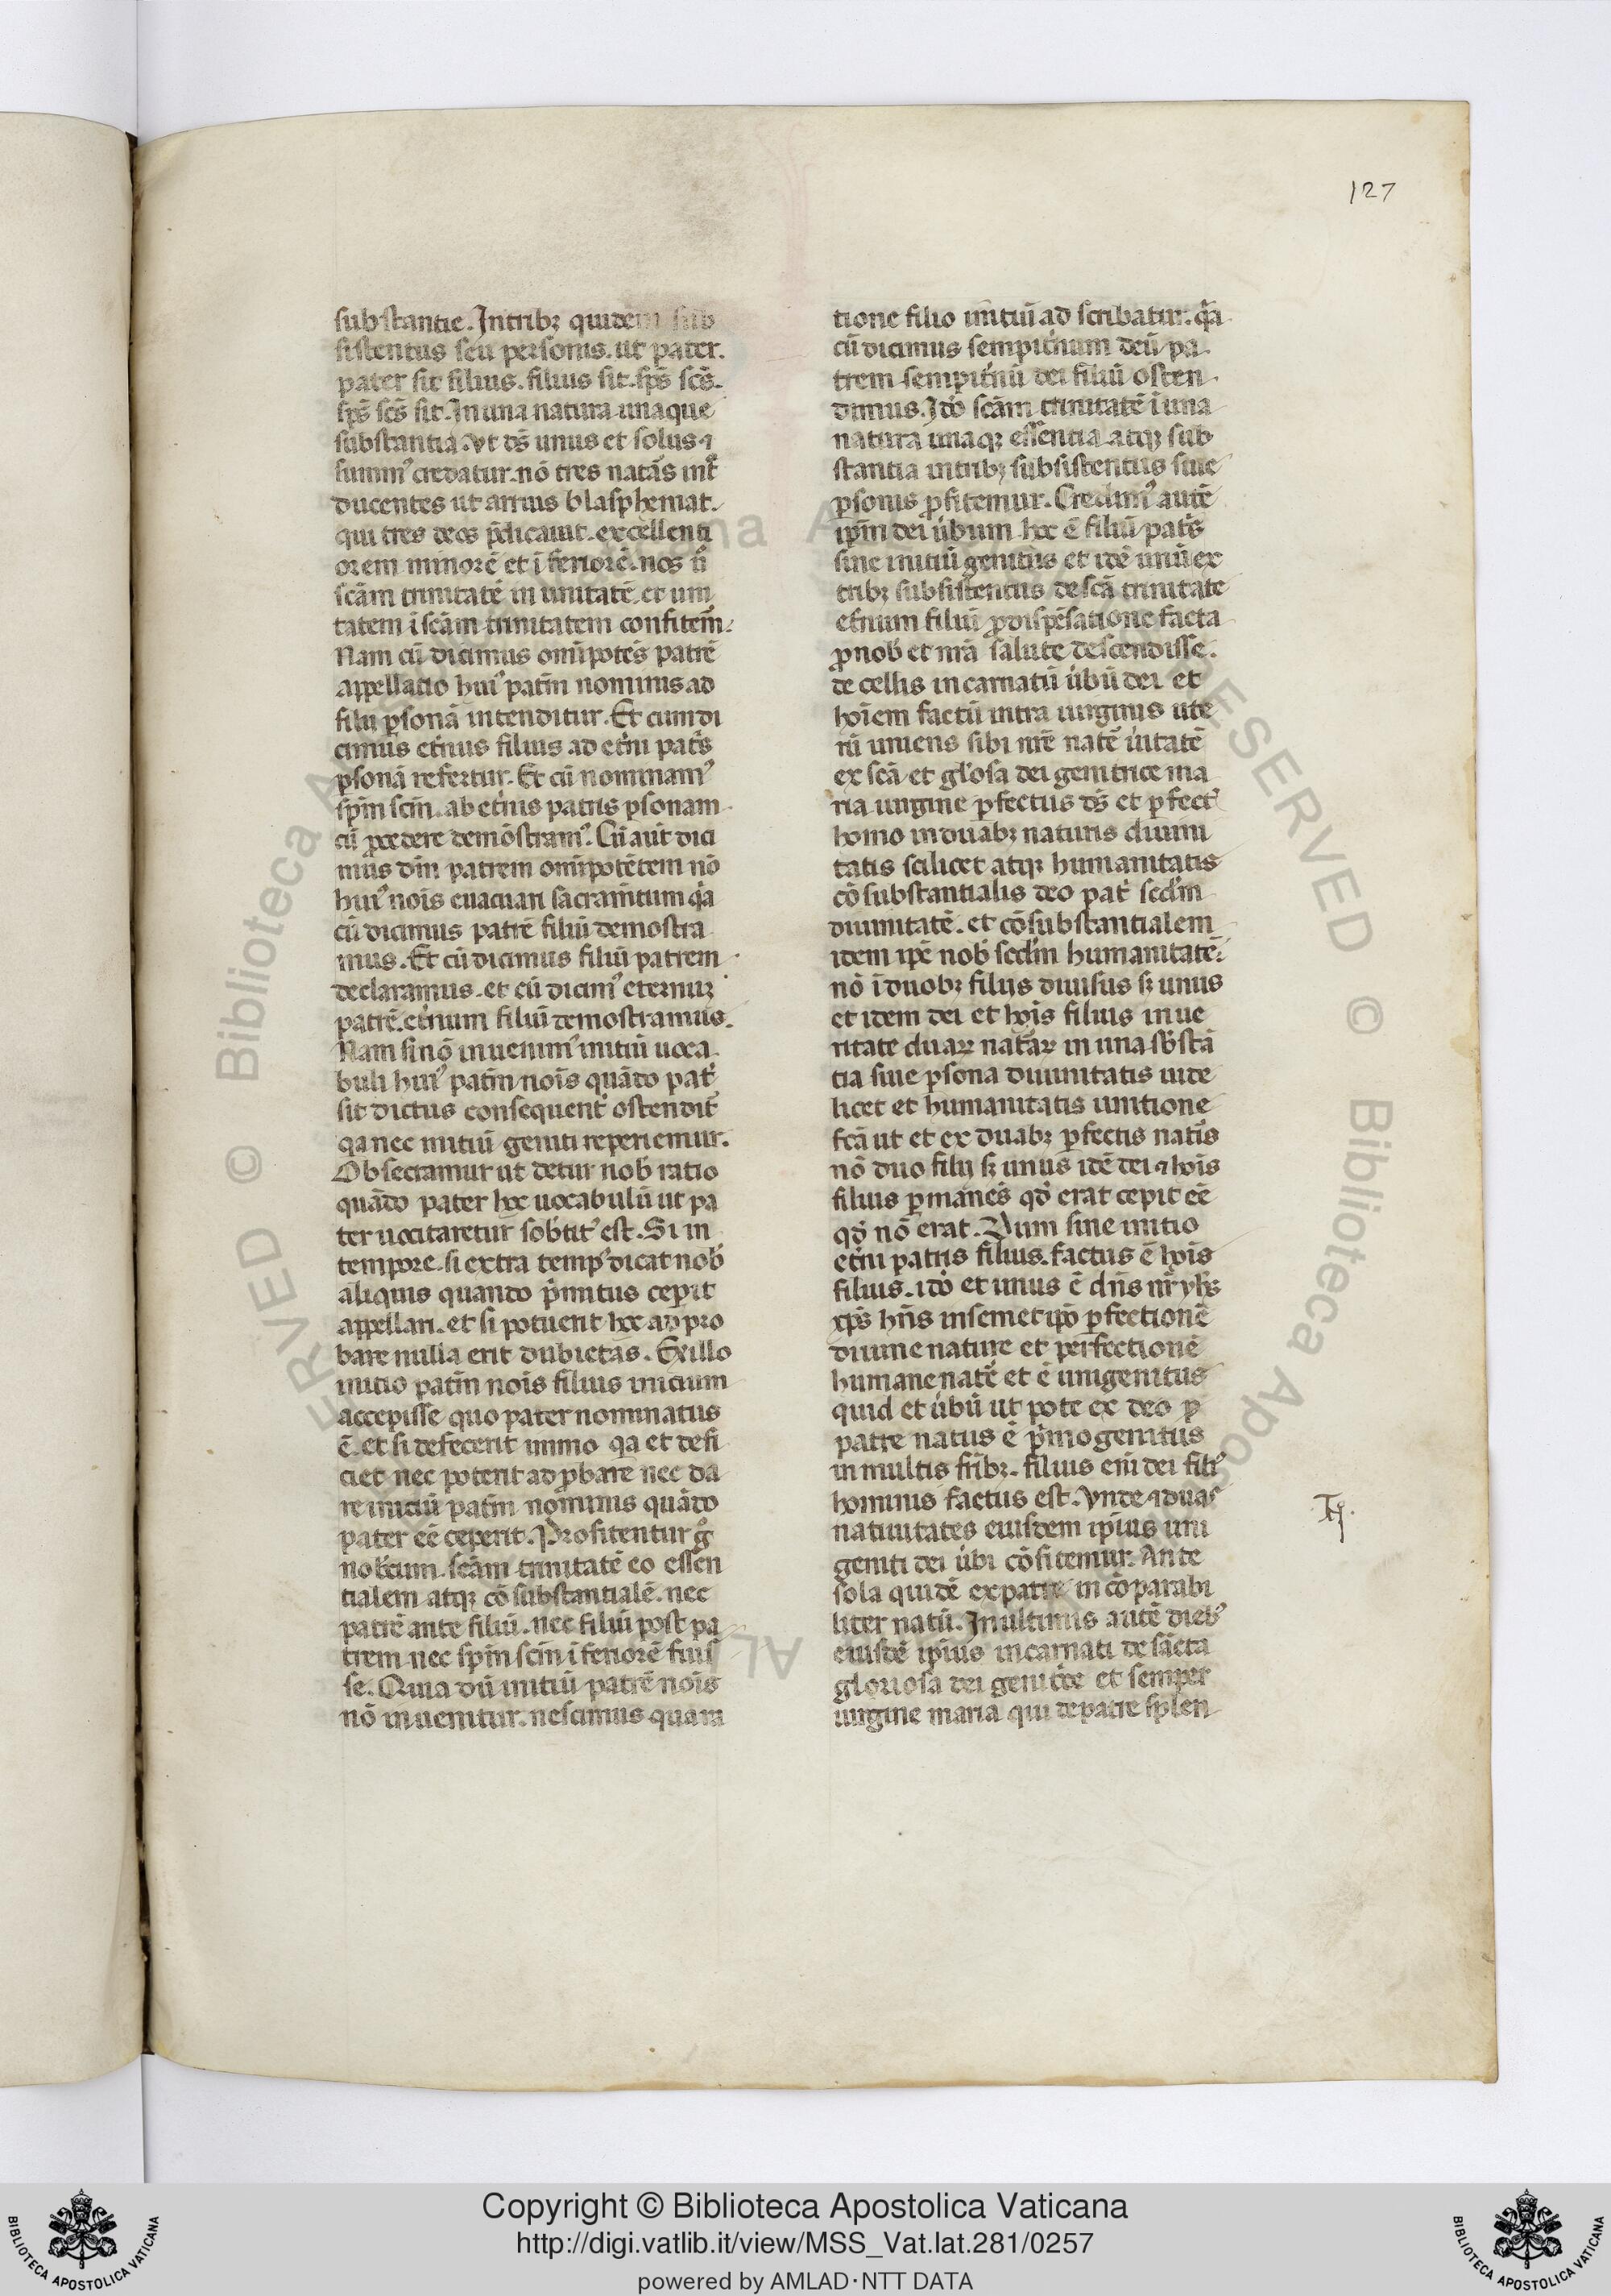 127
substantie. Intribꝫ quidem sub
sistentiis seu personis. ut pater.
pater sit filius. filius sit. sp̄s sc̄s.
sp̄s sc̄s sit. In una natura unaque
substantia. vt ds̄ unus et solus ⁊
summꝰ credatur. nō tres natās int͛
ducentes ut arrius blasphemat.
qui tres deos p̄dicauit. excellenti
orem minorē et īferiorē. nos ů
scām trinitatē in unitatē. et uni
tatem ī scām trinitatem confitem̄.
Nam cū dicimus omīpotēs patrē
appellatio huiꝰ patīn nominis ad
filii ꝑsonā intenditur. Et cum di
cimus et̄nus filius ad et̄ni pat͛s
ꝑsonā refertur. Et cū nominamꝰ
sp̄m sc̄m. ab et̄nis patris ꝑsonam
cū ꝓcedere demōstramꝰ. Cū aut̄ dici
mus dīm patrem omīpotētem nō
huiꝰ nois euacuari sacram̄tum q͛a
cū dicimus patrē filiū demostra
mus. Et cū dicimus filiū patrem
declaramus. et cū dicimꝰ eternuꝫ
patrē. et̄num filiū demostramus.
Nam si nō inuenimꝰ initiū uoca
buli huiꝰ patīn nois quādo pat͛
sit dictus consequent͛ ostendit͛
qa nec initiū geniti reperiemur.
Obsecramur ut detur nob̄ ratio
quādo pater hoc uocabulū ut pa
ter uocitaretur sob̄titꝰ est. Si in
tempore. si extra tempꝰ dicat nob̄
aliquis quando p͛mitus cepit
appellari. et si potuerit hoc appro
bare nulla erit dubietas. Ex illo
initio patīn nois filius initium
accepisse quo pater nominatus
ē. et si defecerit immo qa et defi
ciet nec poterit adꝓbare nec da
re initiū patīn nominis quādo
pater eē ceperit. Profitentur g͛
nobcum. scām trinitatē eo essen
tialem atqꝫ cōsubstantialē. nec
patrē ante filiū. nec filiū post pa
trem nec sp̄m sc̄m īferiorē fuis
se. Quia dū initiū patrē nois
nō inuenitur. nescimus quam
tione filio initiū ad scribatur. q͛a
cū dicimus sempit͛num deū pa
trem sempit͛nū dei filiū osten
dimus. Ido scām trinitatē ī una
natura unaqꝫ essentia atqꝫ sub
stantia intribꝫ subsistentiis siue
ꝑsonis ꝓfitemur. Credimꝰ autē
ip̄m dei u͛bum hoc ē filiū pat͛s
sine initiū genitus et idē unū ex
tribꝫ subsistentiis de scā trinitate
et̄num filiū ꝓ dispēsatione facta
ꝓ nob̄ et nr̄a salute descendisse.
de cellis incarnatū u͛bū dei et
hoīem factū intra uirginis ute
rū uniens sibi nr̄e nat͛e u͛itatē
ex scā et glo͛sa dei genitrice ma
ria uirgine ꝑfectus ds̄ et ꝑfectꝰ
homo in duabꝫ naturis diuini
tatis scilicet atqꝫ humanitatis
cōsubstantialis deo pat͛ scd̄m
diuinitatē. et cōsubstantialem
idem ip̄e nob̄ scd̄m humanitatē.
nō ī duobꝫ filiis diuisus sꝫ unus
et idem dei et hoīs filius in ue
ritate duaꝝ nat͛aꝝ in una sb̄stā
tia siue ꝑsona diuinitatis uide
licet et humanitatis unitione
fc̄a ut et ex duabꝫ ꝑfectis nat͛is
nō duo filii sꝫ unus idē dei ⁊ hoīs
filius ꝑmanēs qd̄ erat cepit eē
qd̄ nō erat. Dum sine initio
et̄ni patris filius. factus ē hoīs
filius. ido et unus ē dn̄s nr̄ yhs̄
xp̄s hn̄s in semet ip̄o ꝑfectionē
diuine nature et perfectionē
humane nat͛e et ē unigenitus
quid et u͛bū ut pote ex deo ꝑ
patre natus ē p͛mogenitus
in multis fr̄ibꝫ. filius eni dei filiꝰ
hominis factus est. vnde ⁊ duas
natiuitates eiusdem ipius uni
geniti dei u͛bi cōfitemur. Ante
sola quidē ex patre in cōparabi
liter natū. In ultimis autē diebꝰ
eiusdē ipius incarnati de sācta
gloriosa dei genit͛ce et semper
uirgine maria qui de patre splen
Copyright © Biblioteca Apostolica Vaticana
http://digi.vatlib.it/view/MSS_Vat.lat.281/0257
powered by AMLAD·NTT DATA
BIBLIOTECA APOSTOLICA VATICANA
BIBLIOTECA APOSTOLICA VATICANA